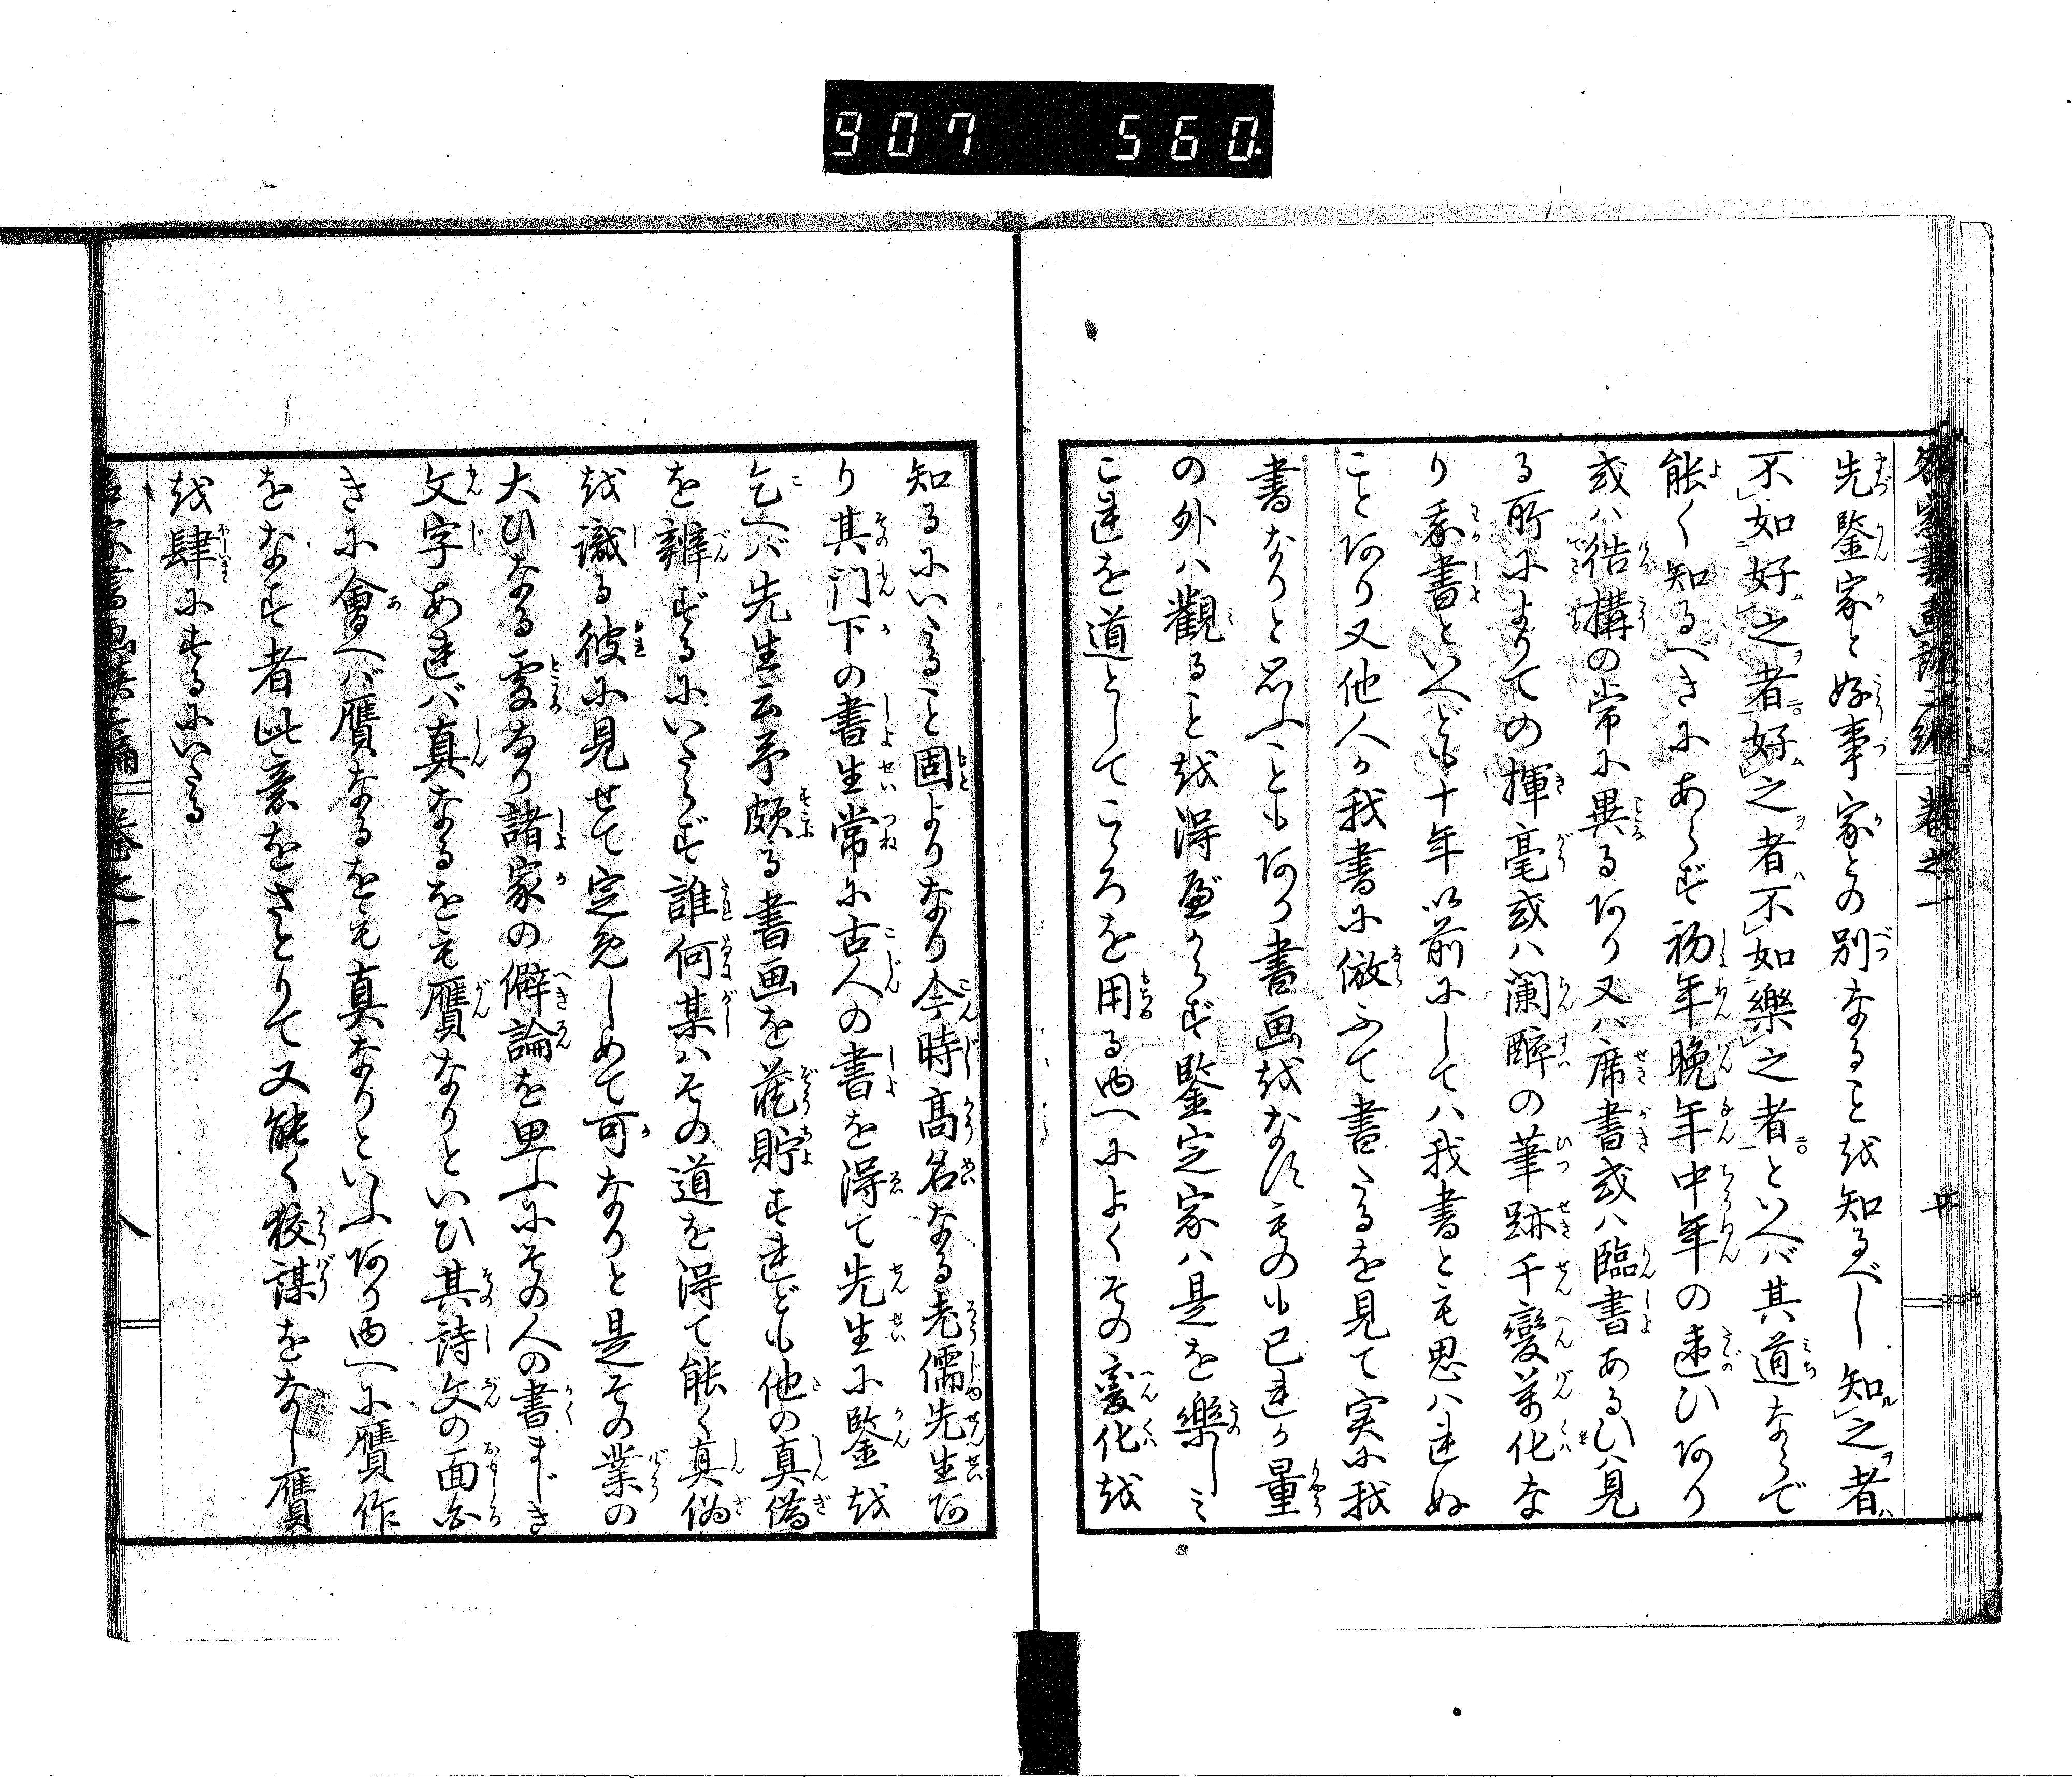 907 560
先鑒家と好事家との別なること越知るべし知之者ハ
不如好之者好之者不如樂之者といへバ其道ならで
能く知るべきにあらず初年晩年中年の違ひあり
或ハ結構の常に異るあり又ハ席書或ハ臨書あるひハ見
る所によりての揮毫或ハ瀾醉の筆跡千變萬化な
り我書といへども十年以前にしてハ我書とも思ハれぬ
ことあり又他人が我書に倣ふて書たるを見て実に我
書なりと思ふこともあり書画をなすものも己れが量
の外ハ觀ること越得ざらず鑒定家ハ是を樂しミ
これを道としてこゝろを用る由へによくその變化越
知るにいたること固よりなり今時高名なる老儒先生あ
り其門下の書生常に古人の書を得て先生に鑒越
乞へバ先生云予頗る書画を藏貯すれども他の真僞
を辨ずるにいたらず誰何某ハその道を得て能く真偽
越識る彼に見せて定免しめて可なりと是その業の
大ひなる處なり諸家の僻論を思ふにその人の書まじき
文字あれバ真なるをも贋なりといひ其詩文の面白
きに會へバ贋なるをも真なりといふあり由へに贋作
をなす者此意をさとりて又能く狡謀をなし贋
越肆にするにいたる
卷之一
八